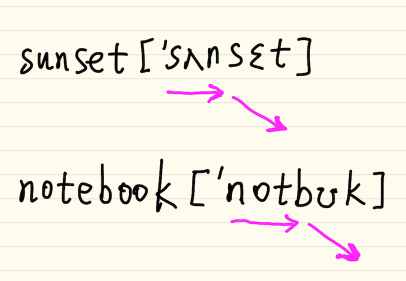 sunset ['sʌnsɛt]
notebook ['notbʊk]